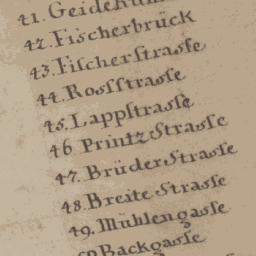 42. Fischerbrück
43. Fiſcherſtraſſe
44. Roſsſtraſſe
45. Lappſtraſſe
46 Printz Straſſe
47. Brüder Straſſe
48. Breite Straſſe
49. Mühlengaſſe
50 Backgaſſe